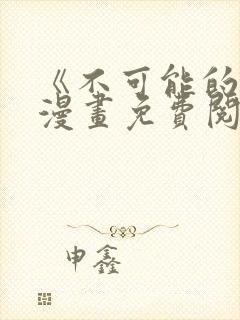 《不可能的
漫畫免費閱
申鑫